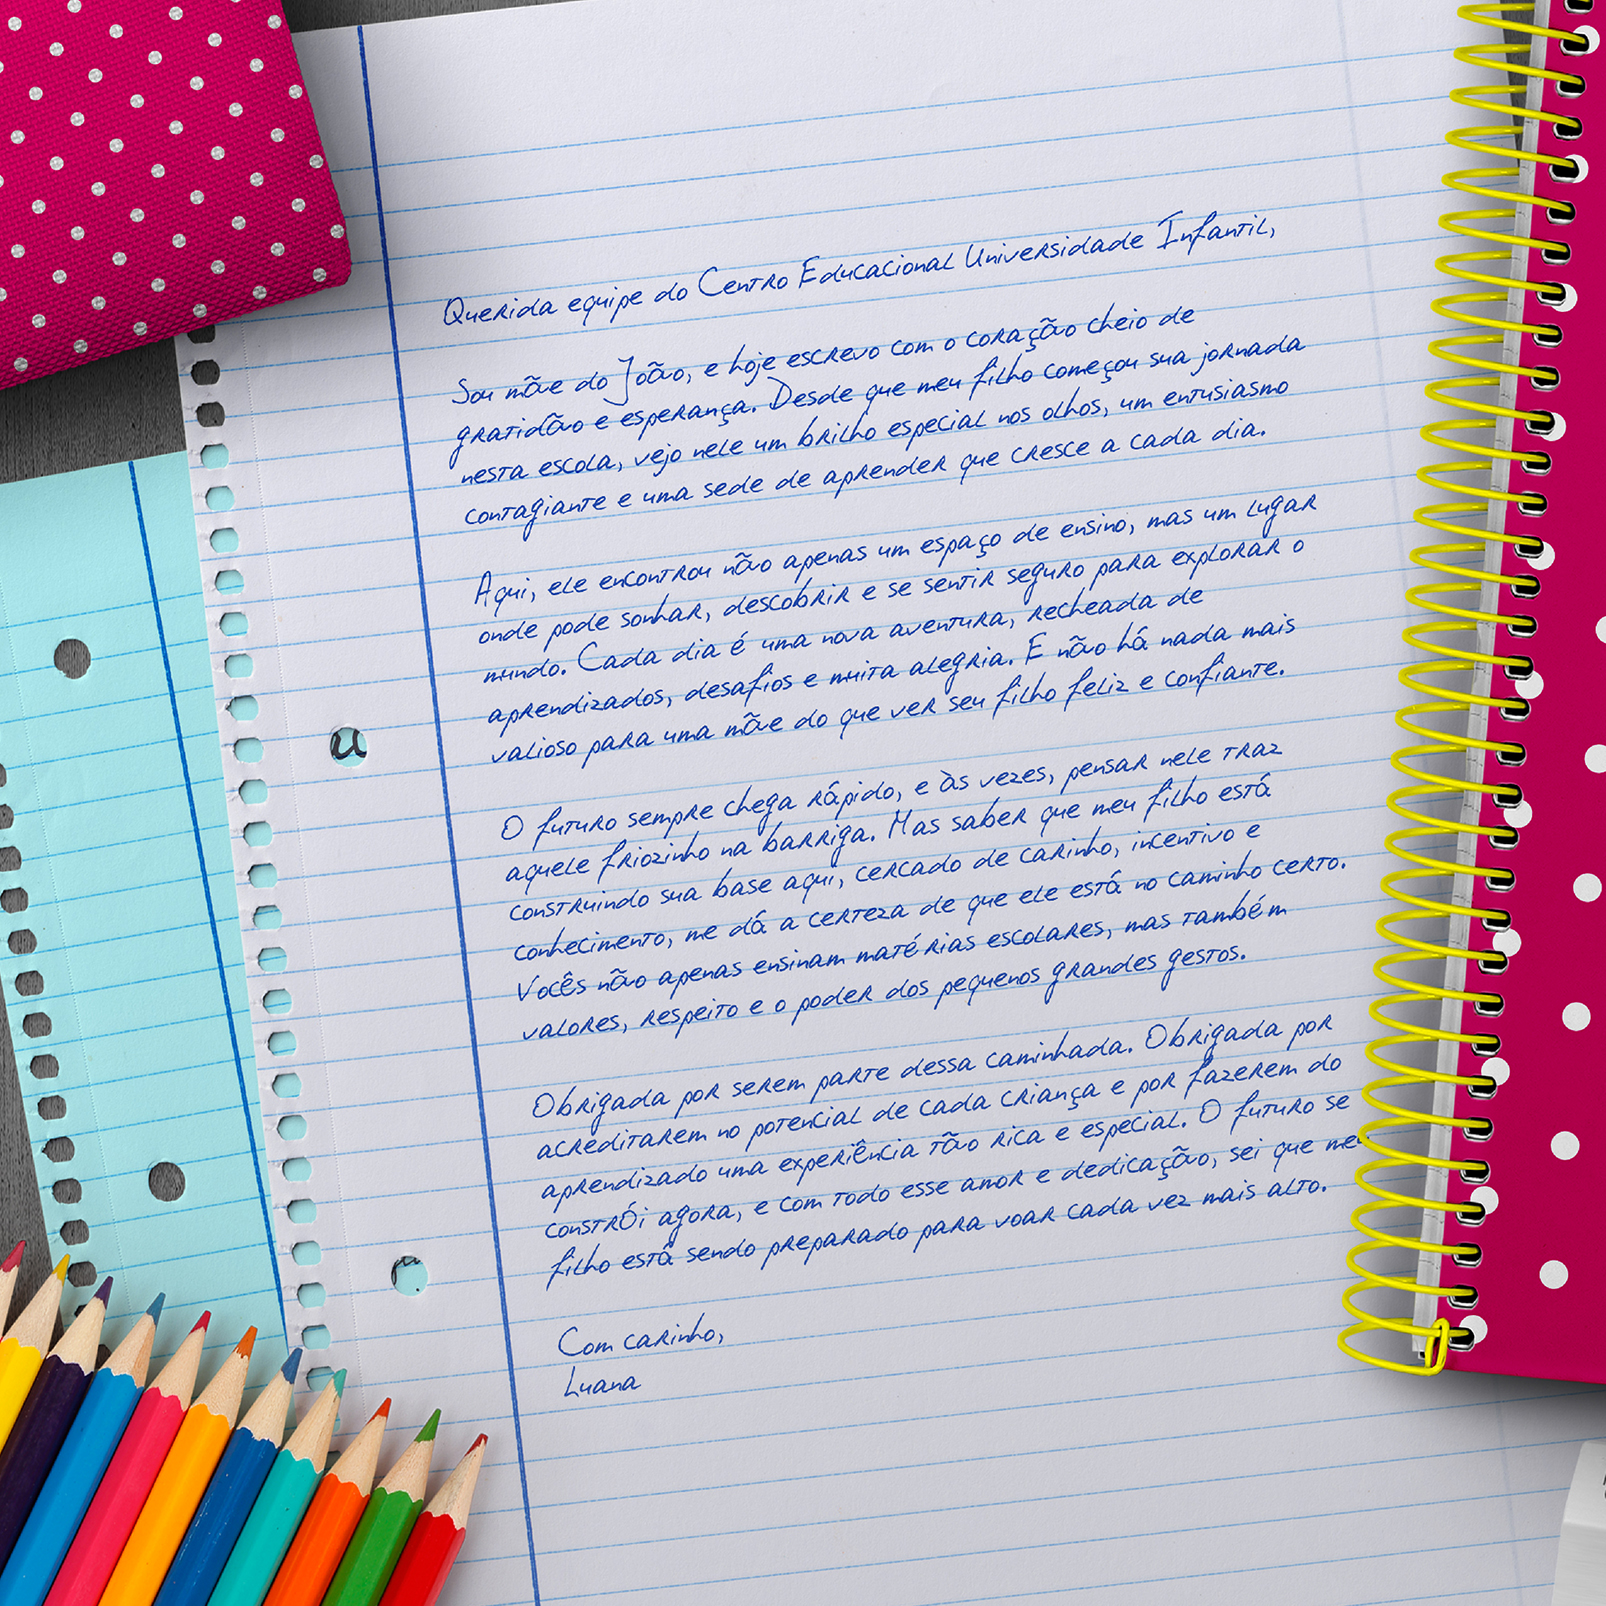 Querida equipe do Centro Educacional Universidade Infantil,
Sou mãe do João, e hoje escrevo com o coração cheio de
gratidão e esperança. Desde que meu filho começou sua jornada
nesta escola, vejo nele um brilho especial nos olhos, um entusiasmo
contagiante e uma sede de aprender que cresce a cada dia.
Aqui, ele encontrou não apenas um espaço de ensino, mas um lugar
onde pode sonhar, descobrir e se sentir seguro para explorar o
mundo. Cada dia é uma nova aventura, recheada de
aprendizados, desafios e muita alegria. E não há nada mais
valioso para uma mãe do que ver seu filho feliz e confiante.
O futuro sempre chega rápido, e às vezes, pensar nele traz
aquele friozinho na barriga. Mas saber que meu filho está
construindo sua base aqui, cercado de carinho, incentivo e
conhecimento, me dá a certeza de que ele está no caminho certo.
Vocês não apenas ensinam matérias escolares, mas também
valores, respeito e o poder dos pequenos grandes gestos.
Obrigada por serem parte dessa caminhada. Obrigada por
acreditarem no potencial de cada criança e por fazerem do
aprendizado uma experiência tão rica e especial. O futuro se
constrói agora, e com todo esse amor e dedicação, sei que meu
filho está sendo preparado para voar cada vez mais alto.
Com carinho,
Luana